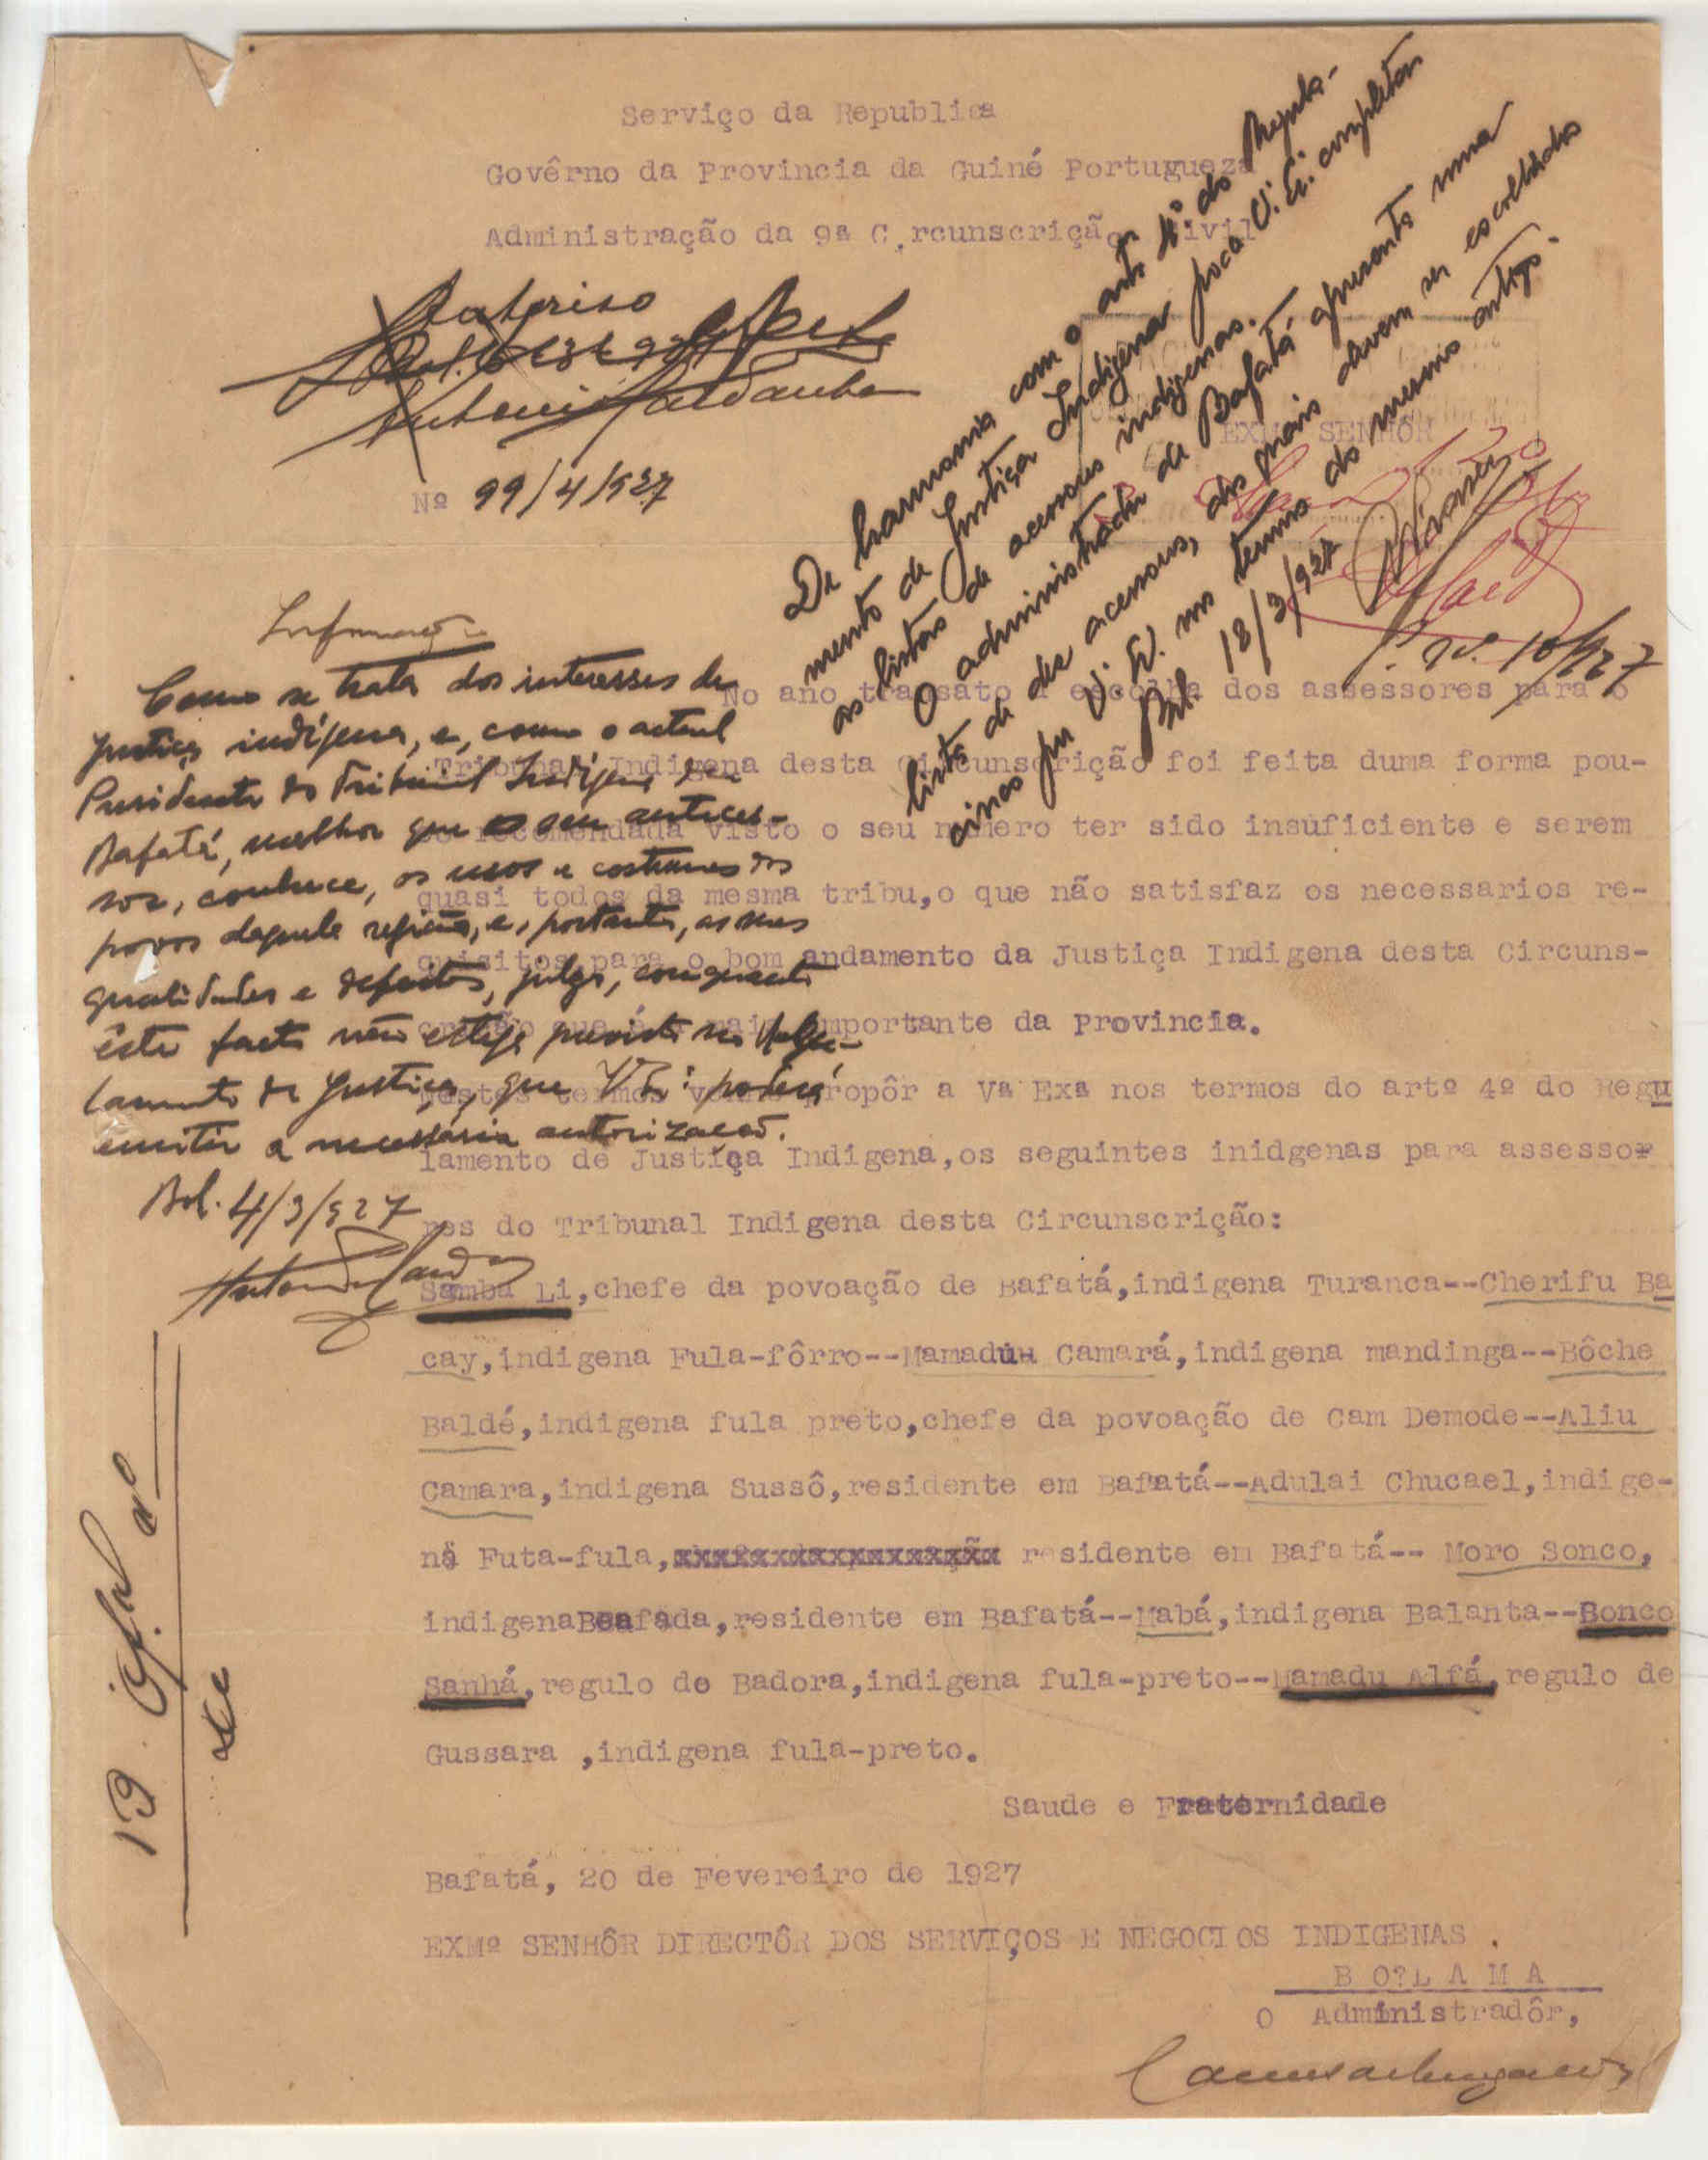 Serviço da Republica
Govêrno da Provincia da Guiné Portugueza
Administração da 9ª C.rcunscrição Civil
Autoriso
Antonio Saldanha
Nº 99/4/927
De harmonia com o artº 4º do Regula-
mento de Justiça Indigena poca V. Ex. completar
as listas de acessores indigenas.
O administrador de Bafatá apresenta uma
lista de dez acessores, dos quais devem ser escolhidos
cinco por V. Ex. nos termos do mesmo artigo.
Bol. 18/3/927
EXMº SENHÔR
Informação
Como se trata dos interesses da
justiça indígena, e, como o actual
Presidente do Tribunal Indigena de
Bafatá, melhor que o seu anteces-
sor, conhece, os usos e costumes dos
povos daquela região, e, portanto, as suas
qualidades e defeitos, julgo, conquanto
êste facto não esteja previsto no Regu-
lamento de Justiça, que V. Ex.ª poderá
emitir a necessária autorização.
Bol. 4/3/927
No ano transato a escolha dos assessores para o
Tribunal Indigena desta Circunscrição foi feita duma forma pou-
co recomendada visto o seu numero ter sido insuficiente e serem
quasi todos da mesma tribu,o que não satisfaz os necessarios re-
quisitos para o bom andamento da Justiça Indigena desta Circuns-
crição que é a mais importante da Provincia.
Nestes termos venho propôr a Vª Exª nos termos do artº 4º do Regu
lamento de Justiça Indigena,os seguintes inidgenas para assessor
res do Tribunal Indigena desta Circunscrição:
Samba Li,chefe da povoação de Bafatá,indigena Turanca--Cherifu Ba
cay,indigena Fula-fôrro--Mamadu Camará,indigena mandinga--Bôche
Baldé,indigena fula preto,chefe da povoação de Cam Demode--Aliu
Camara,indigena Sussô,residente em Bafatá--Adulai Chucael,indige-
na Futa-fula, residente em Bafatá-- Moro Sonco,
indigenaBeafada,residente em Bafatá--Mabá,indigena Balanta--Bonco
Sanhá,regulo de Badora,indigena fula-preto--Mamadu Alfá,regulo de
Gussara ,indigena fula-preto.
Saude e Fraternidade
Bafatá, 20 de Fevereiro de 1927
EXMº SENHÔR DIRECTÔR DOS SERVIÇOS E NEGOCIOS INDIGENAS .
B O?L A M A
O Administradôr,